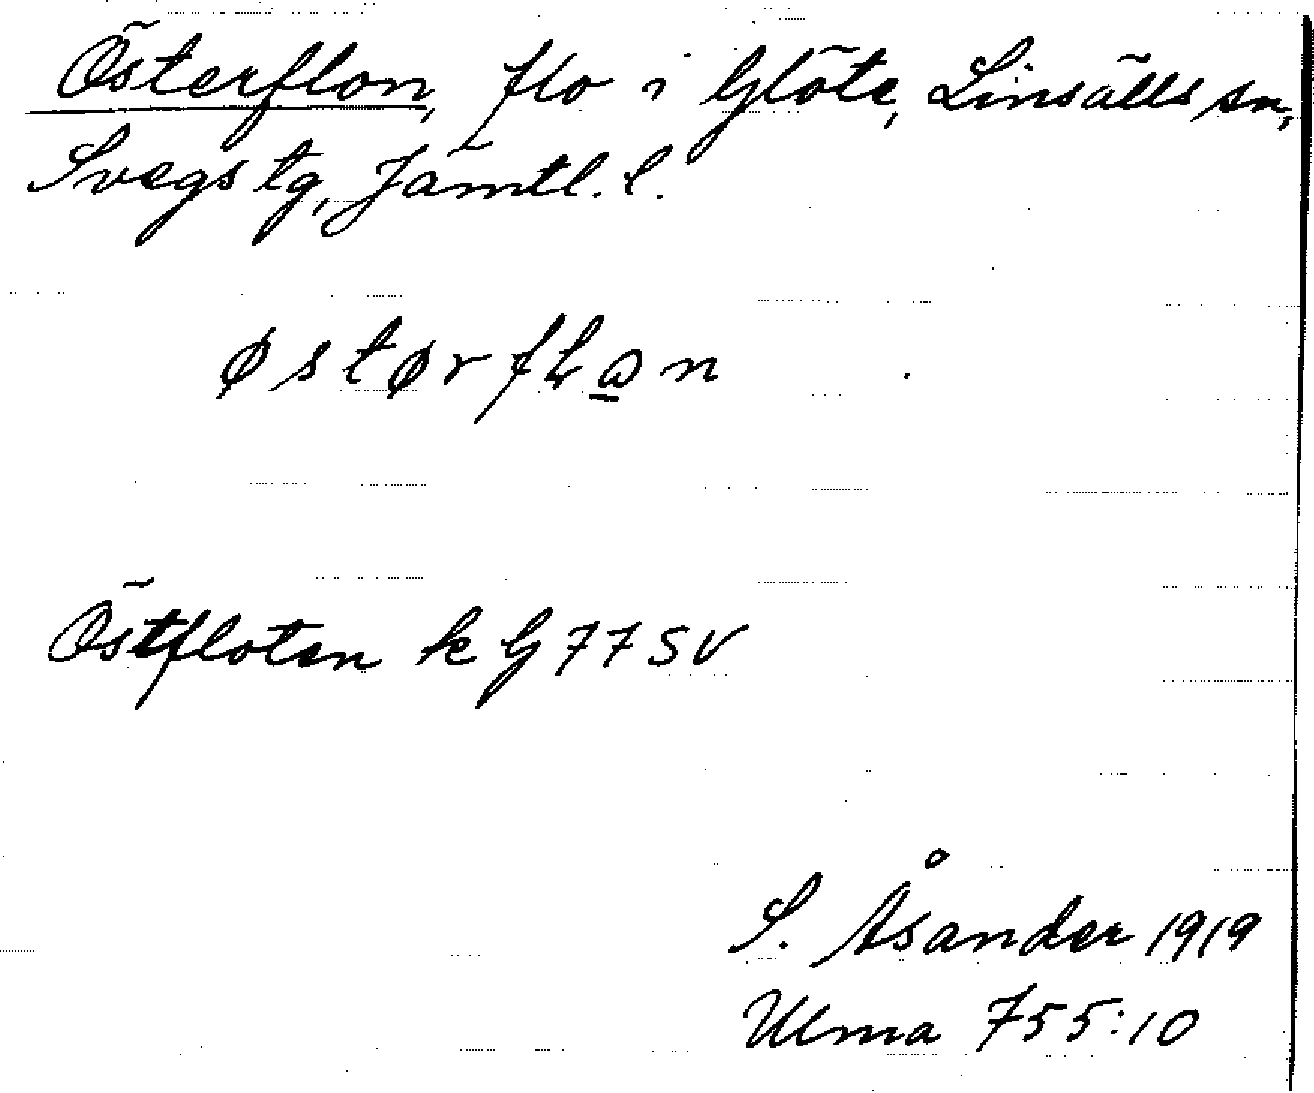 Österflon, flo i Glöte, Linsälls sn,
Svegs tg, Jämtl. l.
østørfLꞷn
Östfloten k G 77 SV
S. Åsander 1919
Ulma 755:10